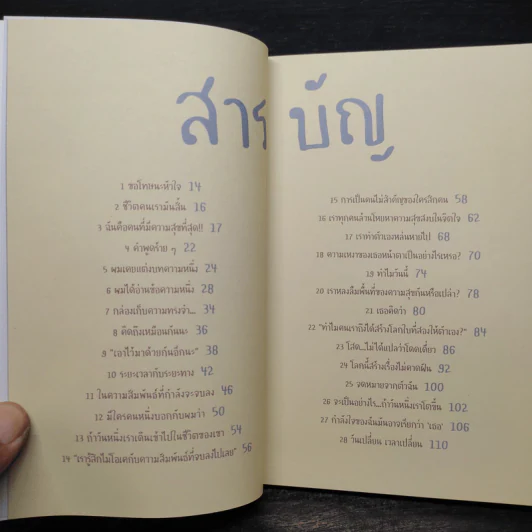 สารบัญ
1 ขอโทษนะหัวใจ 14
2 ชีวิตคนเรามันสั้น 16
3 ฉันคือคนที่มีความสุขที่สุด!! 17
4 คำพูดร้าย ๆ 22
5 ผมเคยแต่งบทความหนึ่ง 24
6 ผมได้อ่านข้อความหนึ่ง 28
7 กล่องเก็บความทรงจำ... 34
8 คิดถึงเหมือนกันนะ 36
9 "เอาไว้มาด้วยกันอีกนะ" 38
10 ระยะเวลากับระยะทาง 42
11 ในความสัมพันธ์ที่กำลังจะจบลง 46
12 มีใครคนหนึ่งบอกกับผมว่า 50
13 ถ้าวันหนึ่งเราเดินเข้าไปในชีวิตของเขา 54
14 "เรารู้สึกไม่โอเคกับความสัมพันธ์ที่จบลงไปเลย" 56
15 การเป็นคนไม่สำคัญของใครสักคน 58
16 เราทุกคนล้วนโหยหาความสุขสงบในจิตใจ 62
17 เราทำตัวเองหล่นหายไป 68
18 ความเหงาของเธอหน้าตาเป็นอย่างไรเหรอ? 70
19 ทำไมวันนี้ 74
20 เราหลงลืมพื้นที่ของความสุขกันหรือเปล่า? 78
21 เธอคิดว่า 80
22 "ทำไมคนเราถึงได้สร้างโลกใบที่สองให้ตัวเอง?" 84
23 โสด...ไม่ได้แปลว่าโดดเดี่ยว 86
24 โลกนี้สร้างเรื่องไม่คาดฝัน 92
25 จดหมายจากตัวฉัน 100
26 จะเป็นอย่างไร...ถ้าวันหนึ่งเราโตขึ้น 102
27 กำลังใจของฉันมันอาจเรียกว่า 'เธอ' 106
28 วันเปลี่ยน เวลาเปลี่ยน 110